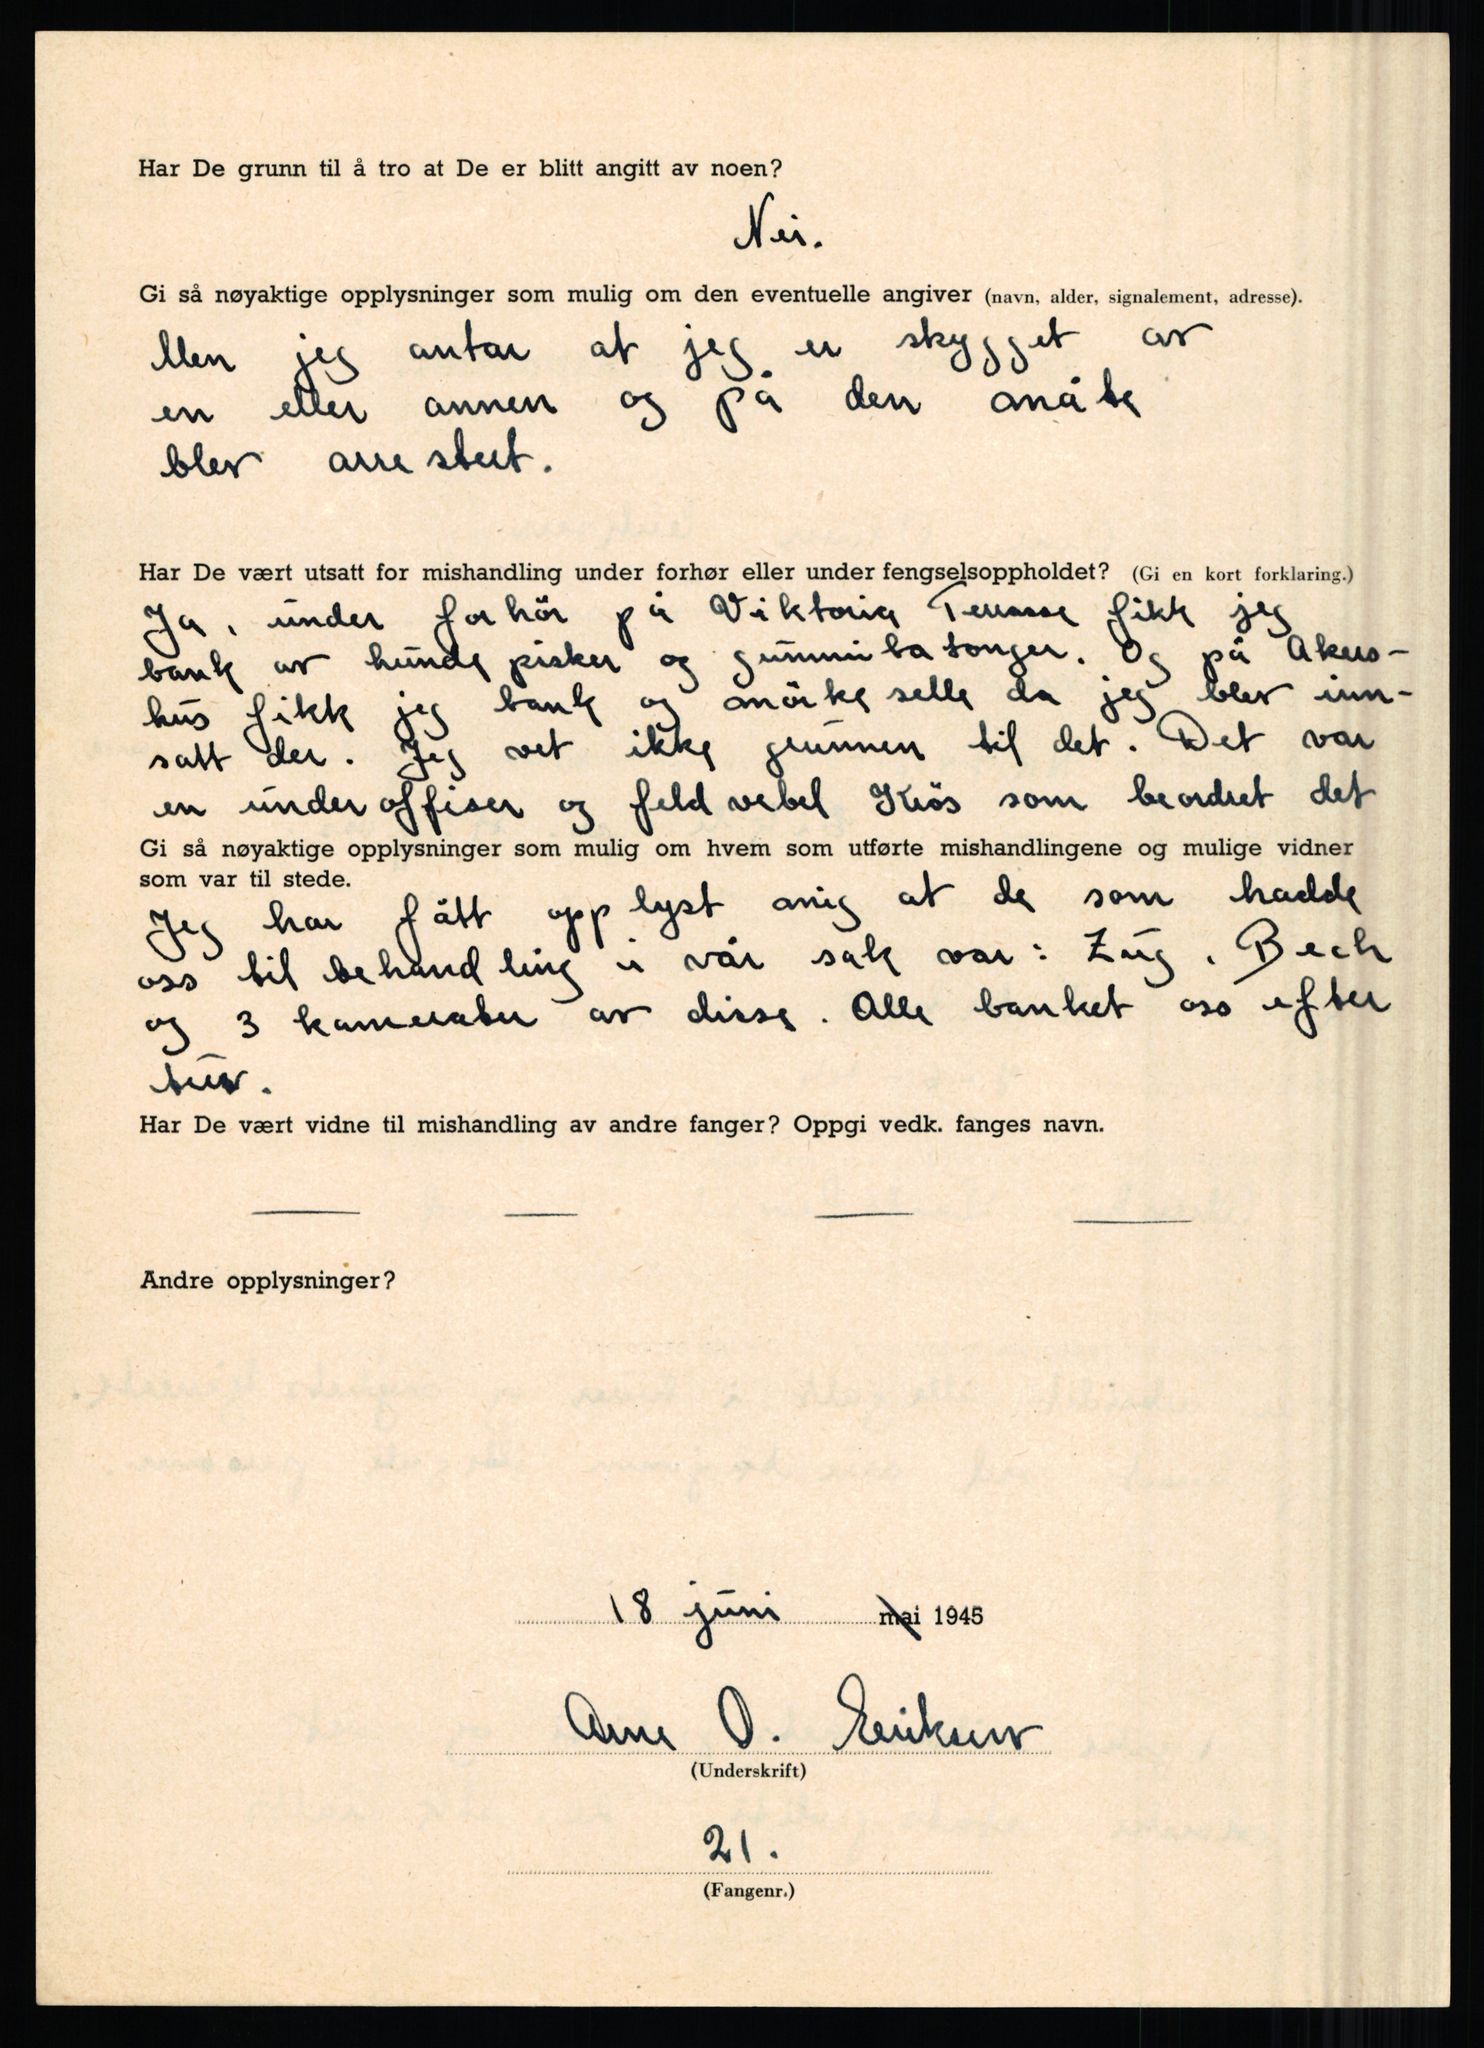 Har De grunn til å tro at De er blitt angitt av noen?
Nei.
Gi så nøyaktige opplysninger som mulig om den eventuelle angiver (navn, alder, signalement, adresse).
Men jeg antar at jeg er skygget av
en eller annen og på den måte
blev arrestert.
Har De vært utsatt for mishandling under forhør eller under fengselsoppholdet? (Gi en kort forklaring.)
Ja, under forhör på Viktoria Terrasse fikk jeg
bank av hunde pisker og gummibatonger. Og på Akers-
hus fikk jeg bank og mörke selle da jeg blev inn-
satt der. Jeg vet ikke grunnen til det. Det var
en underoffiser og feldvebel Krös som beordret det
Gi så nøyaktige opplysninger som mulig om hvem som utførte mishandlingene og mulige vidner
som var til stede.
Jeg har fått opplyst mig at de som hadde
oss til behandling i vår sak var: Zug, Bech
og 3 kamerater av disse. Alle banket oss efter
tur.
Har De vært vidne til mishandling av andre fanger? Oppgi vedk. fanges navn.
Andre opplysninger?
18 juni mai 1945
Arne O. Eriksen
(Underskrift)
21.
(Fangenr.)